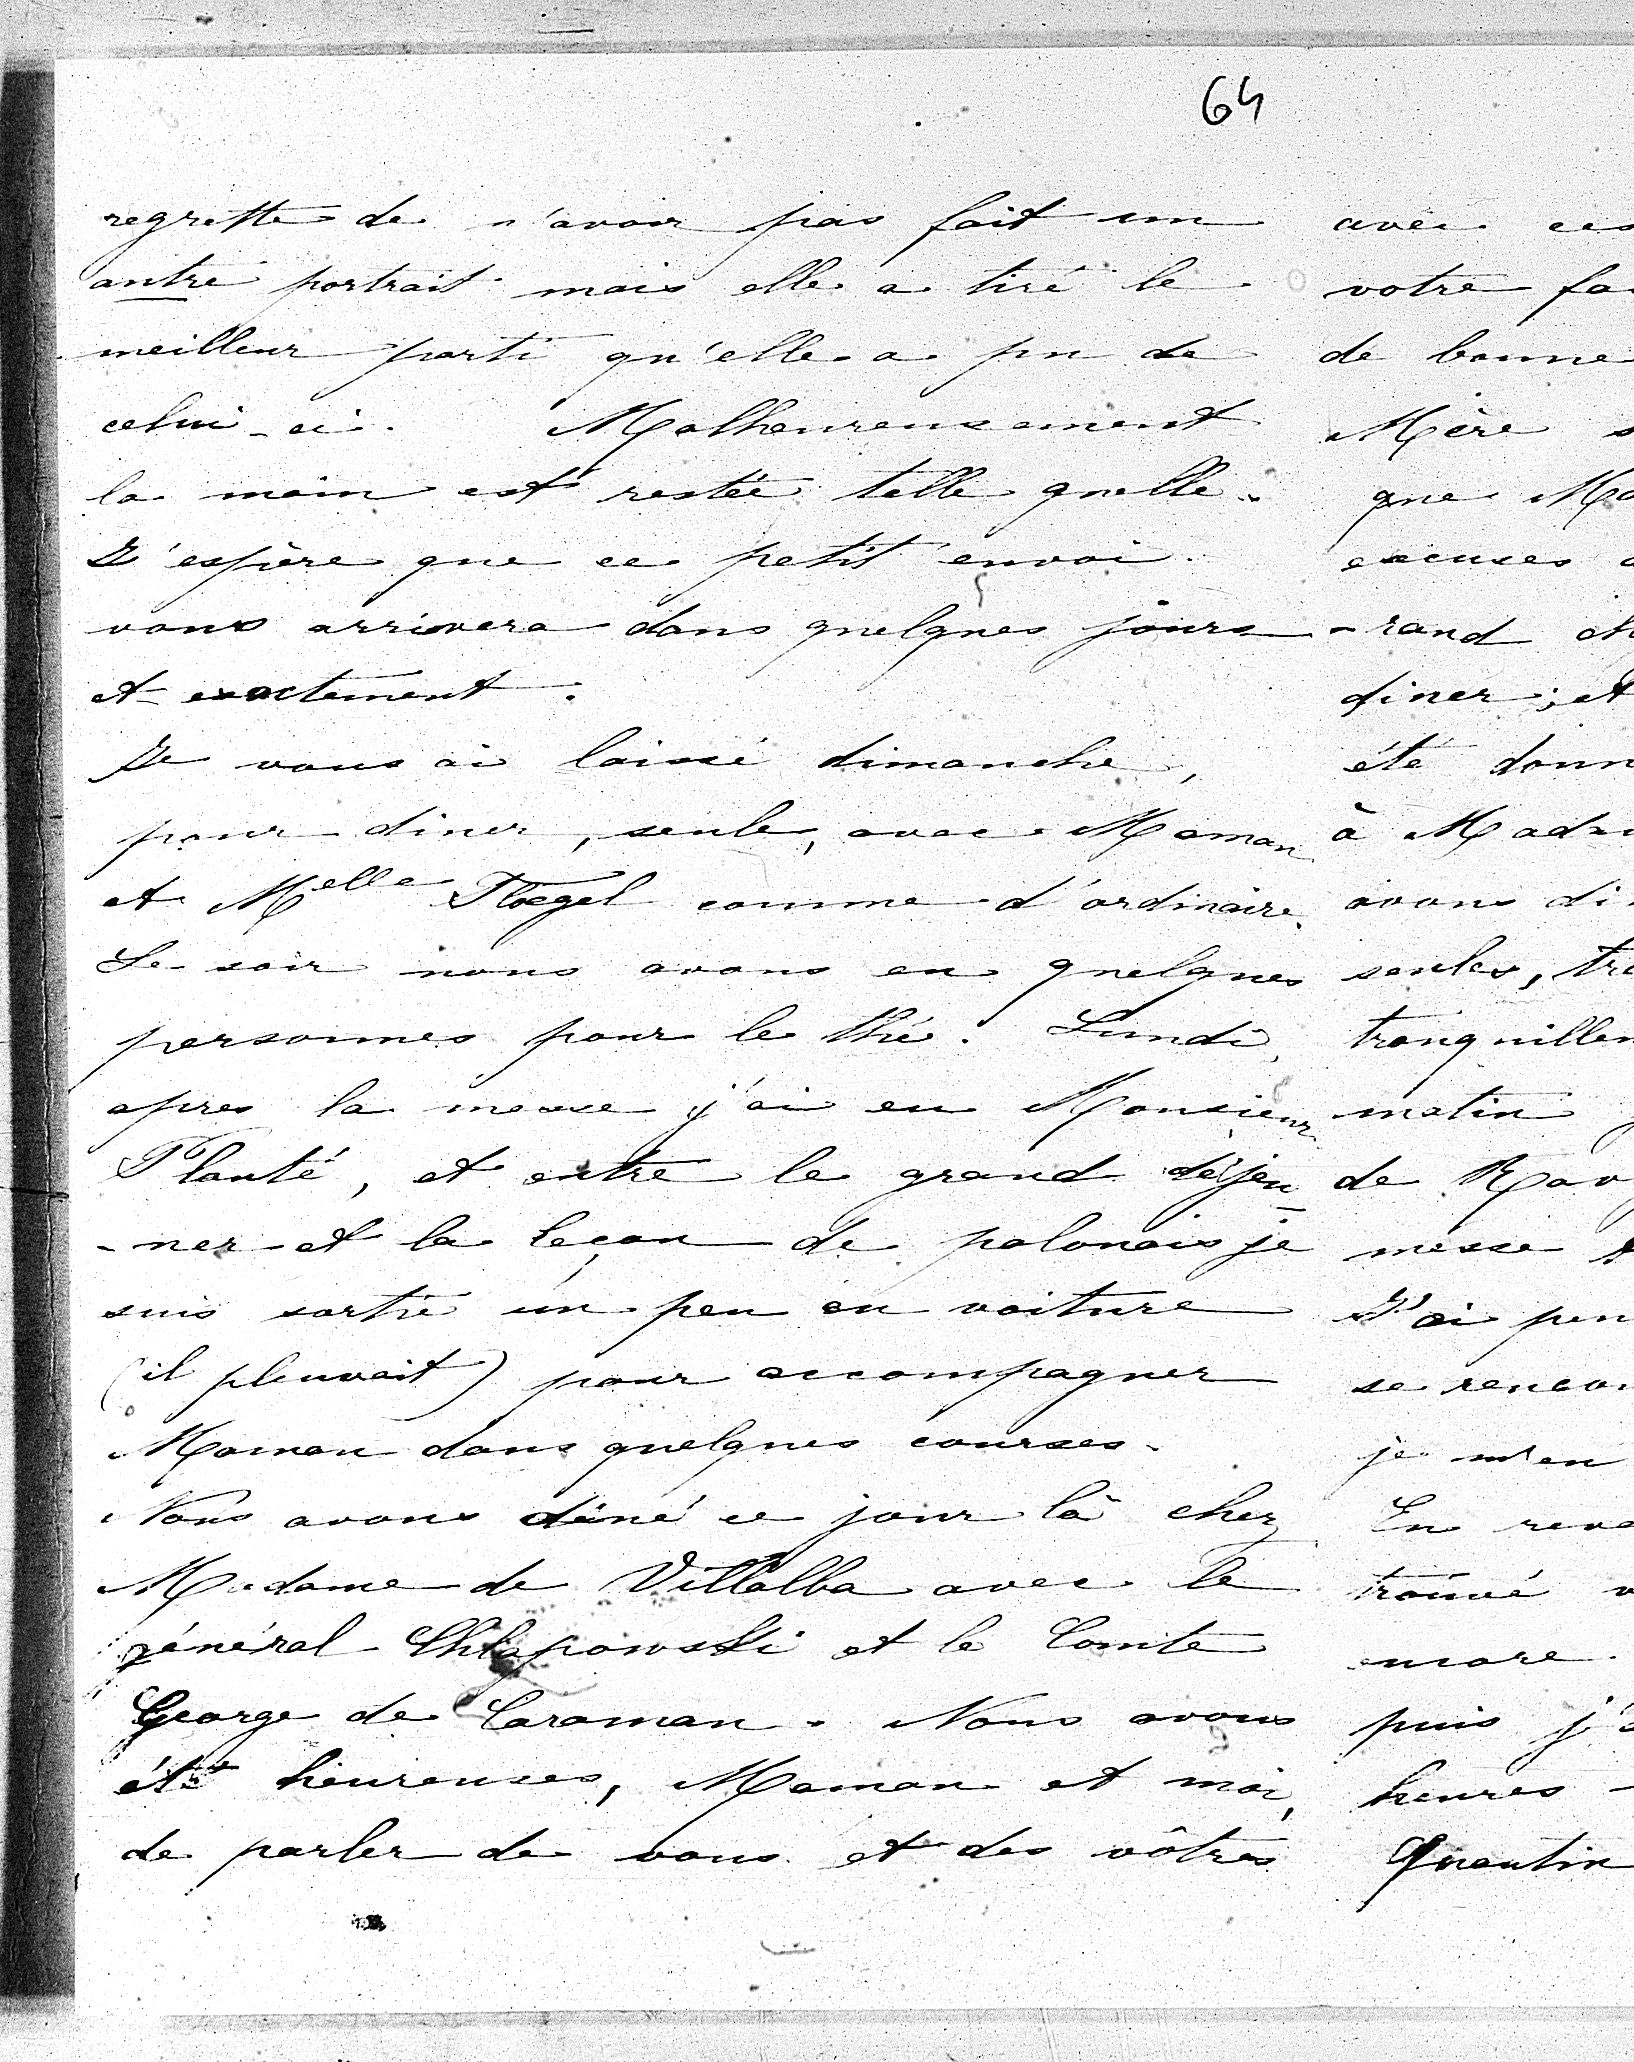 64
regrette de n'avoir pas fait un
autre portrait mais elle a tiré le
meilleur parti qu'elle a pu de
celui-ci. Malheureusement
la main est restée telle quelle.
J'espère que ce petit envoi
vous arrivera dans quelques jours
et exactement.
Je vous ai laissé dimanche,
pour diner, seule, avec Maman
et Melle Flœgel comme d'ordinaire.
Le soir nous avons eu quelques
personnes pour le thé. Lundi,
apres la messe j'ai eu Monsieur
Planté, et entre le grand déjeu
-ner et la leçon de polonais je
suis sortie un peu en voiture
(il pleuvait) pour accompagner
Maman dans quelques courses.
Nous avons diné ce jour là chez
Madame de Villalba avec le
général Chlapowski et le Comte
George de Caraman. Nous avons
été heureuses, Maman et moi,
de parler de vous et des vôtres
avec ces
votre fa
de bonne
Mère s
que Ma
excuses a
-rand ch
diner; et
été donn
à Mada
avons di
seules, tr
tranquillem
matin j
de Rav
messe
J'ai pen
se rencon
je m'en
En reve
trouvé v
encore.
puis j'a
heures -
Quentin